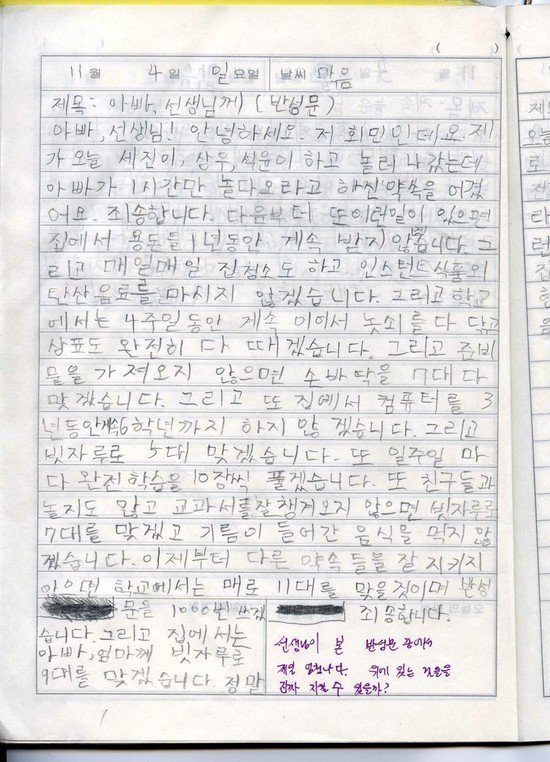 ( )
11월 4일 일요일 날씨 맑음
제목: 아빠, 선생님께 (반성문)
아빠, 선생님! 안녕하세요. 저 희민인데요. 제
가 오늘 세진이, 상우, 석운이 하고 놀러 나갔는데
아빠가 1시간만 놀다오라고 하신 약속을 어겼
어요. 죄송합니다. 다음부터 또 이런일이 있으면
집에서 용돈을 1년동안 계속 받지 않겠습니다. 그
리고 매일매일 집청소도 하고 인스턴트식품외
탄산음료를 마시지 않겠습니다. 그리고 학교
에서는 4주일 동안 계속 이어서 놋쇠를 다 닦고
상표도 완전히 다 때겠습니다. 그리고 준비
물을 가져오지 않으면 손바닥을 7대 다
맞겠습니다. 그리고 또 집에서 컴퓨터를 3
년동안 계속 6학년까지 하지 않겠습니다. 그리고
빗자루로 5대 맞겠습니다. 또 일주일 마
다 완전학습을 10장씩 풀겠습니다. 또 친구들과
놀지도 않고 교과서를 잘 챙겨오지 않으면 빗자루로
7대를 맞겠고 기름이 들어간 음식을 먹지 않
겠습니다. 이제부터 다른 약속들을 잘 지키지
않으면 학교에서는 매로 11대를 맞을것이며 반성
문을 1000번 쓰겠
습니다. 그리고 집에서는
아빠, 엄마께 빗자루로
9대를 맞겠습니다. 정말
죄송합니다.
선생님이 본 반성문 중에서
제일 멋졌다. 위에 있는 것들을
감자 지킬 수 있을까?